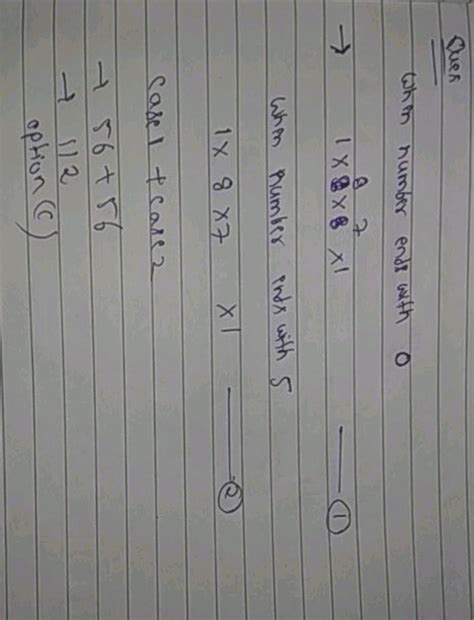 Ques
when number ends with 0
→ 1 x 8 x 7 x 1 —— ①
when number ends with 5
1 x 8 x 7 x 1 —— ②
Case 1 + Case 2
→ 56 + 56
→ 112
option (C)